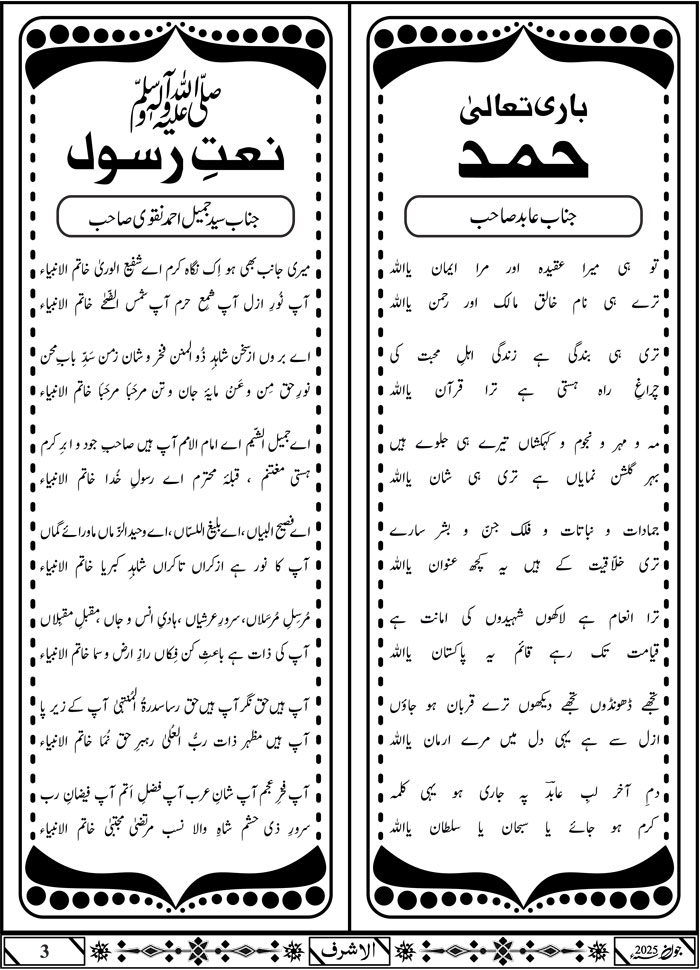 باری تعالیٰ
حمد
جناب عابد صاحب
تو ہی میرا عقیدہ اور مرا ایمان یااللہ
ترے ہی نام خالق مالک اور رحمٰن یااللہ
تری ہی بندگی ہے زندگی اہلِ محبت کی
چراغِ راہ ہستی ہے ترا قرآن یااللہ
مہ و مہر و نجوم و کہکشاں تیرے ہی جلوے ہیں
بہر گلشن نمایاں ہے تری ہی شان یااللہ
جمادات و نباتات و فلک جنّ و بشر سارے
تری خلّاقیت کے ہیں یہ کچھ عنوان یااللہ
ترا انعام ہے لاکھوں شہیدوں کی امانت ہے
قیامت تک رہے قائم یہ پاکستان یااللہ
تجھے ڈھونڈوں تجھے دیکھوں ترے قربان ہو جاؤں
ازل سے ہے یہی دل میں مرے ارمان یااللہ
دمِ آخر لبِ عابدؔ پہ جاری ہو یہی کلمہ
کرم ہو جائے یا سبحان یا سلطان یااللہ
صلّی اللہ علیہ وآلہٖ وسلّم
نعتِ رسول
جناب سید جمیل احمد نقوی صاحب
میری جانب بھی ہو اِک نگاہ کرم اے شفیع الوریٰ خاتم الانبیاء
آپ نُورِ ازل آپ شمعِ حرم آپ شمس الضّحےٰ خاتم الانبیاء
اے بروں از سخن شاہدِ ذُو المنن فخر و شان زمن سَدِّ بابِ محن
نورِ حق مِن و عَنْ مایۂ جان و تن مرحَبا مرحَبا خاتم الانبیاء
اے جمیل الشیم اے امام الامم آپ ہیں صاحبِ جود و ابرِ کرم
ہستی مغتنم ، قبلۂ محترم اے رسولِ خُدا خاتم الانبیاء
اے فصیح البیاں ،اے بلیغ اللساں ،اے وحید الزّماں ماورائے گماں
آپ کا نور ہے ازکراں تاکراں شاہدِ کبریا خاتم الانبیاء
مُرسلِ مُرسَلاں، سرورِ عرشیاں ،ہادیِ انس و جاں ،مقبلِ مقبِلاں
آپ کی ذات ہے باعثِ کن فِکاں رازِ ارض و سما خاتم الانبیاء
آپ ہیں حق نگر آپ ہیں حق رسا سدرۃُ الْمُنتہیٰ آپ کے زیرِ پا
آپ ہیں مظہرِ ذات ربُّ العُلیٰ رہبرِ حق نُما خاتم الانبیاء
آپ فخرِ عجم آپ شانِ عرب آپ فضلِ اَتم آپ فیضانِ رب
سرورِ ذی حشم شاہِ والا نسب مرتضیٰ مجتبیٰ خاتم الانبیاء
جولائی 2025ء
الاشرف
3